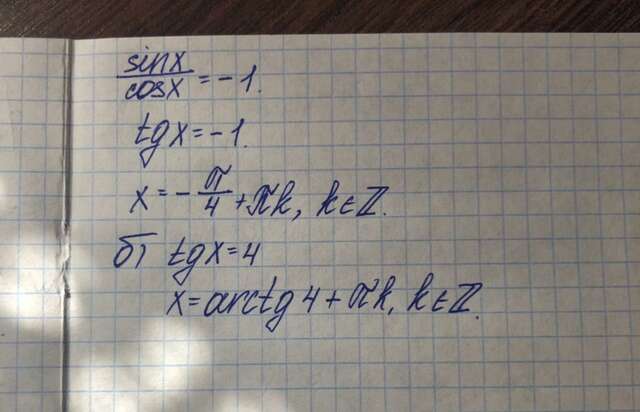 sinx/cosx = -1.
tgx = -1.
x = -π/4 + πk, k∈ℤ.
б) tgx = 4
x = arctg 4 + πk, k∈ℤ.